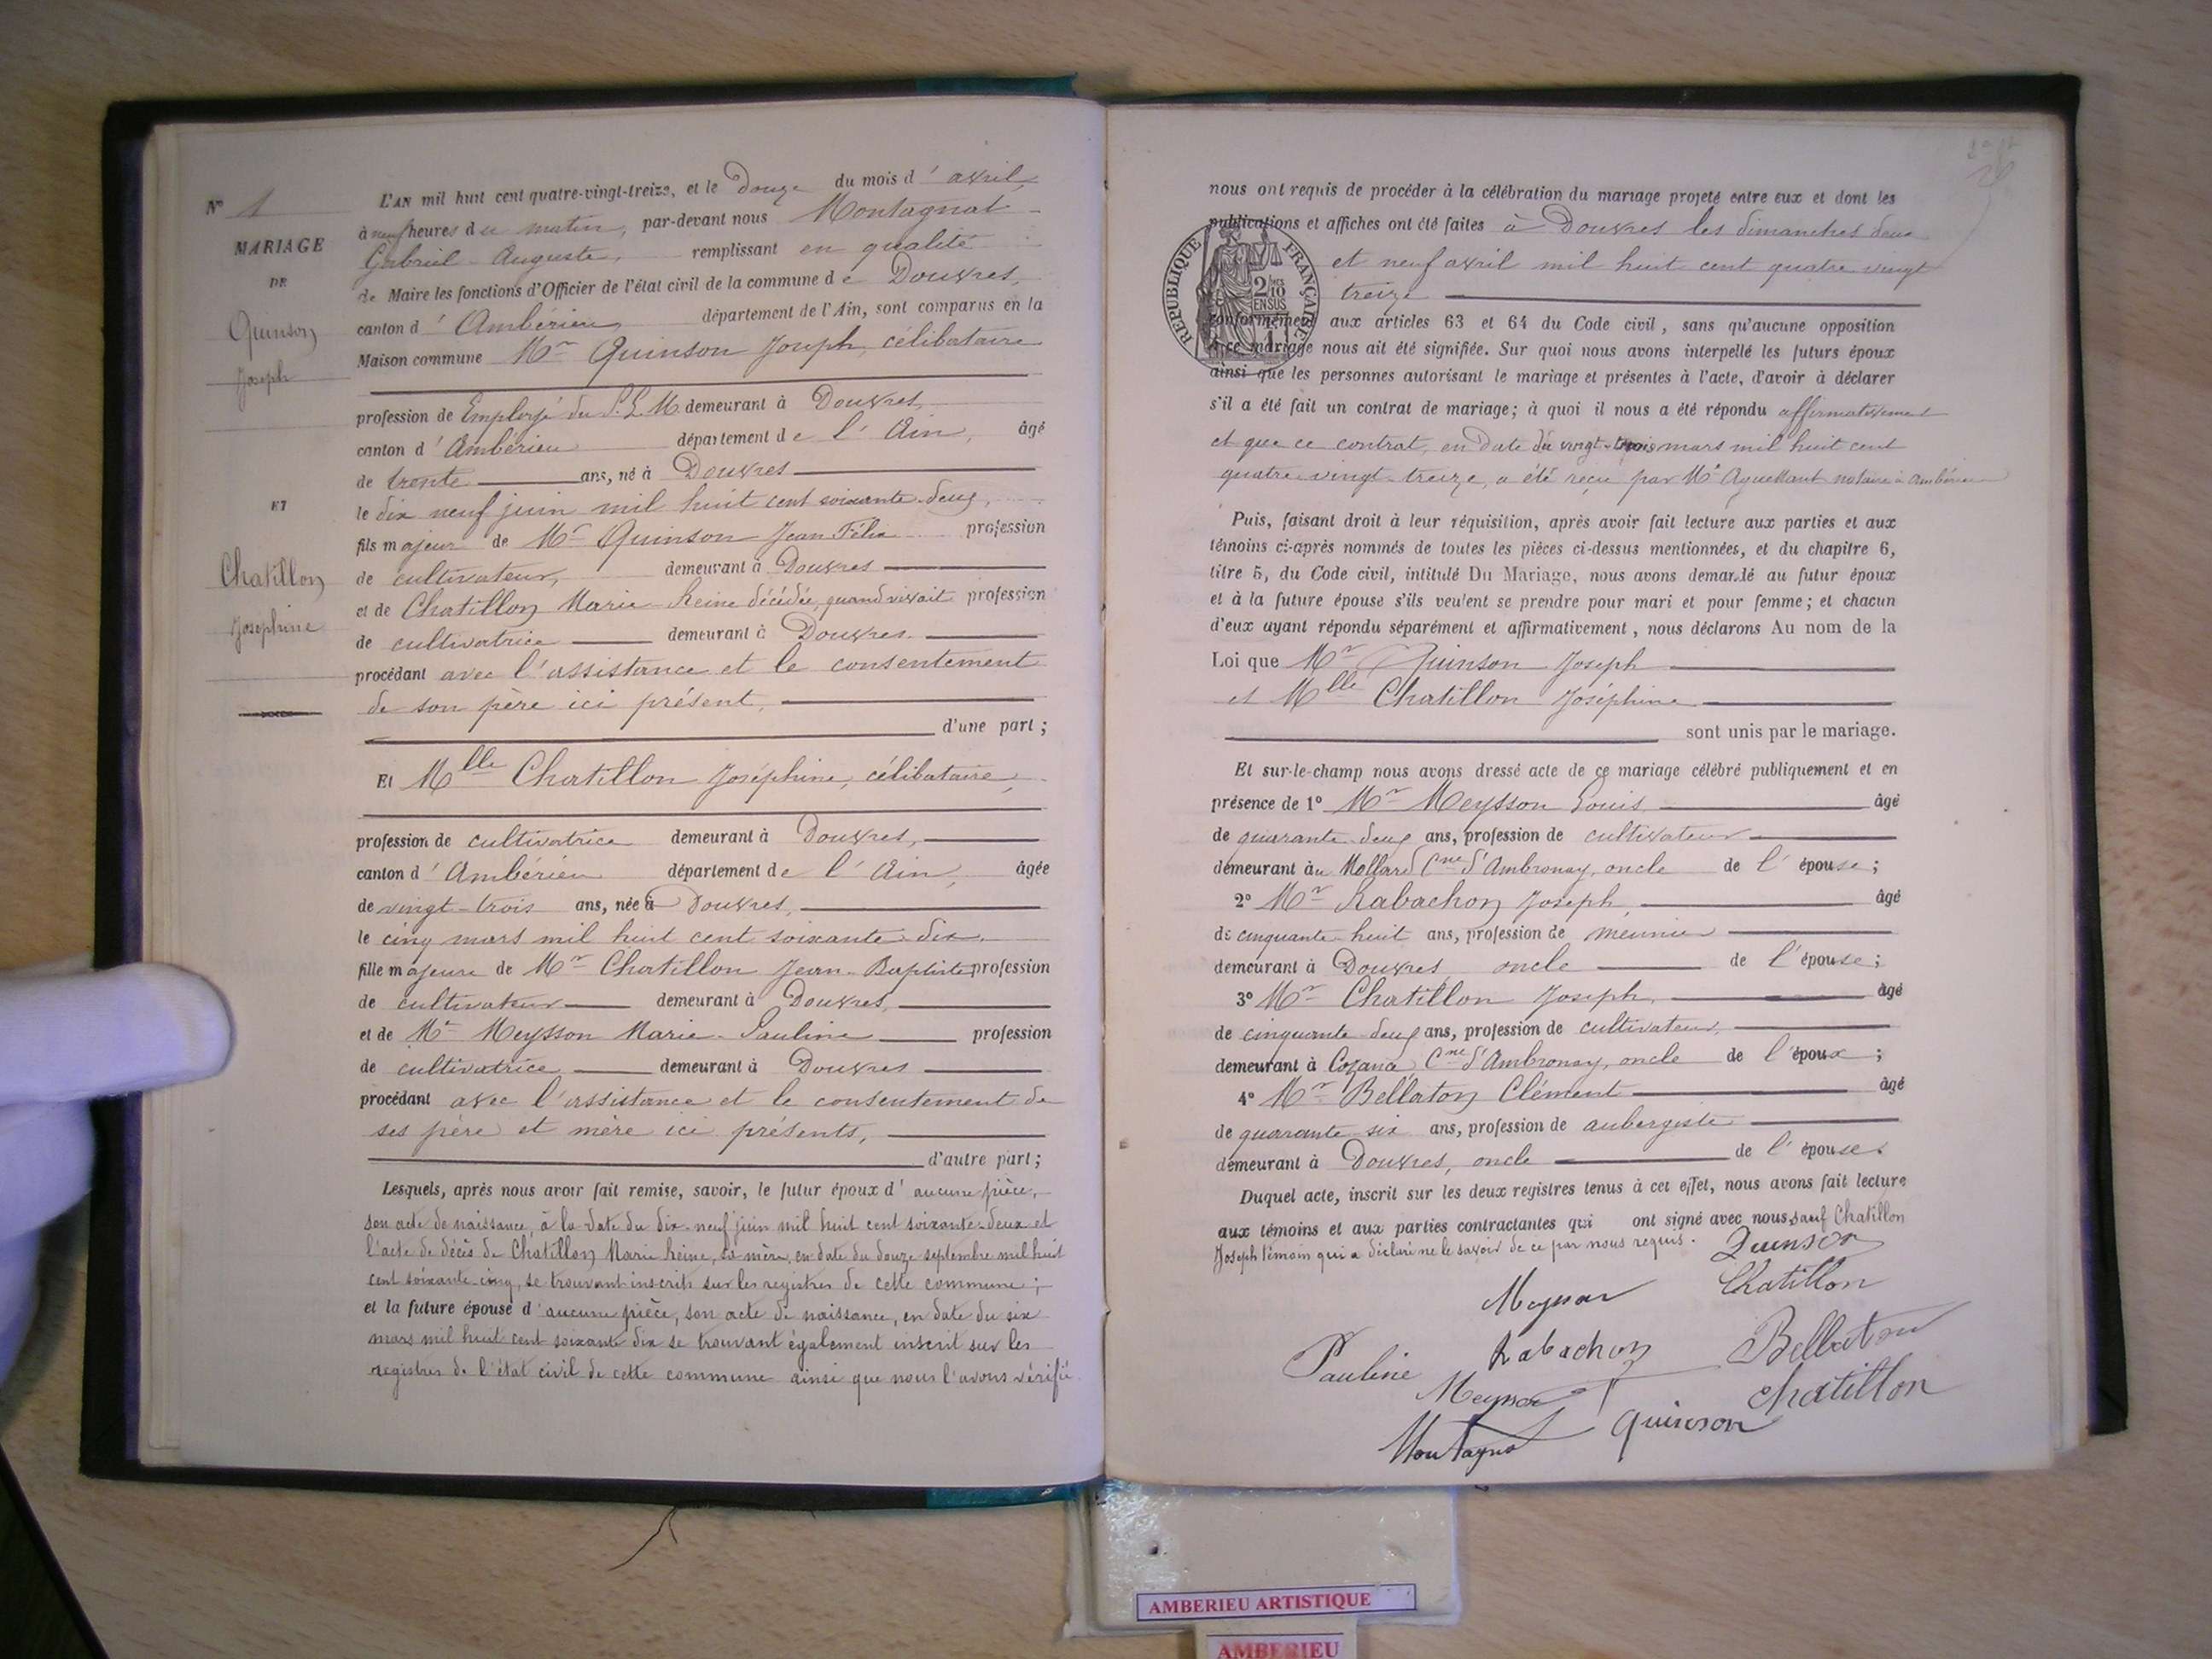 N° 1
MARIAGE
DE
Quinson
Joseph
ET
Chatillon
Joséphine
L'AN mil huit cent quatre-vingt-treize, et le Douze du mois d'avril,
à neuf heures du matin, par-devant nous Montagnat
Gabriel-Auguste, remplissant en qualité
de Maire les fonctions d'Officier de l'état civil de la commune de Douvres,
canton d'Ambérieu département de l'Ain, sont comparus en la
Maison commune Mr Quinson Joseph, célibataire
profession de Employé du P.L.M. demeurant à Douvres,
canton d'Ambérieu département de l'Ain, âgé
de trente ans, né à Douvres
le dix neuf juin mil huit cent soixante-deux,
fils majeur de Mr Quinson Jean Félix profession
de cultivateur, demeurant à Douvres
et de Chatillon Marie-Reine décédée, quand vivait profession
de cultivatrice demeurant à Douvres.
procédant avec l'assistance et le consentement
de son père ici présent,
d'une part;
Et Mlle Chatillon Joséphine, célibataire,
profession de cultivatrice demeurant à Douvres,
canton d'Ambérieu département de l'Ain, âgée
de vingt-trois ans, née à Douvres,
le cinq mars mil huit cent soixante-dix.
fille majeure de Mr Chatillon Jean-Baptiste profession
de cultivateur demeurant à Douvres,
et de Me Meysson Marie-Pauline profession
de cultivatrice demeurant à Douvres
procédant avec l'assistance et le consentement de
ses père et mère ici présents,
d'autre part;
Lesquels, après nous avoir fait remise, savoir, le futur époux d'aucune pièce,
son acte de naissance, à la date du dix-neuf juin mil huit cent soixante-deux et
l'acte de décès de Chatillon Marie Reine, sa mère, en date du douze septembre mil huit
cent soixante-cinq, se trouvant inscrits sur les registres de cette commune;
et la future épouse d'aucune pièce, son acte de naissance, en date du six
mars mil huit cent soixante dix se trouvant également inscrit sur les
registres de l'état civil de cette commune ainsi que nous l'avons vérifié
26
nous ont requis de procéder à la célébration du mariage projeté entre eux et dont les
publications et affiches ont été faites à Douvres les dimanches deux
et neuf avril mil huit cent quatre vingt
treize
REPUBLIQUE FRANÇAISE
2/10 EN SUS
conformément aux articles 63 et 64 du Code civil, sans qu'aucune opposition
à ce mariage nous ait été signifiée. Sur quoi nous avons interpellé les futurs époux
ainsi que les personnes autorisant le mariage et présentes à l'acte, d'avoir à déclarer
s'il a été fait un contrat de mariage; à quoi il nous a été répondu affirmativement
et que ce contrat, en date du vingt-trois mars mil huit cent
quatre-vingt-treize, a été reçu par Me Aguettant notaire à Ambérieu
Puis, faisant droit à leur réquisition, après avoir fait lecture aux parties et aux
témoins ci-après nommés de toutes les pièces ci-dessus mentionnées, et du chapitre 6,
titre 5, du Code civil, intitulé Du Mariage, nous avons demandé au futur époux
et à la future épouse s'ils veulent se prendre pour mari et pour femme; et chacun
d'eux ayant répondu séparément et affirmativement, nous déclarons Au nom de la
Loi que Mr Quinson Joseph
et Mlle Chatillon Joséphine
sont unis par le mariage.
Et sur-le-champ nous avons dressé acte de ce mariage célébré publiquement et en
présence de 1° Mr Meysson Louis âgé
de quarante-deux ans, profession de cultivateur
demeurant au Mollard Cne d'Ambronay, oncle de l'épouse;
2° Mr Rabachon Joseph, âgé
de cinquante-huit ans, profession de meunier
demeurant à Douvres oncle de l'épouse;
3° Mr Chatillon Joseph, âgé
de cinquante-deux ans, profession de cultivateur,
demeurant à Cozance Cne d'Ambronay, oncle de l'époux;
4° Mr Bellaton Clément âgé
de quarante six ans, profession de aubergiste
demeurant à Douvres, oncle de l'épouse.
Duquel acte, inscrit sur les deux registres tenus à cet effet, nous avons fait lecture
aux témoins et aux parties contractantes qui ont signé avec nous sauf Chatillon
Joseph témoin qui a déclaré ne le savoir de ce par nous requis.
Quinson
Meysson Chatillon
Pauline Rabachon Bellaton
Meysson Chatillon
Montagnat Quinson
AMBERIEU ARTISTIQUE
AMBERIEU